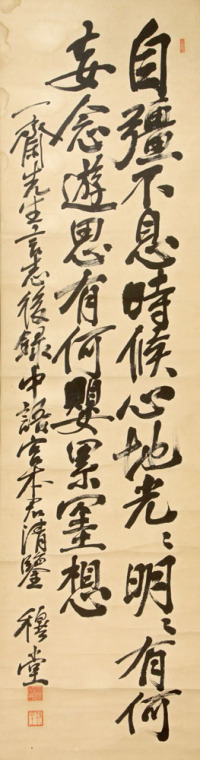 自彊不息時候心地光〻明〻有何
妄念遊思有何嬰累罣想
一齋先生言志後録中語宮本君清鑒 穆堂